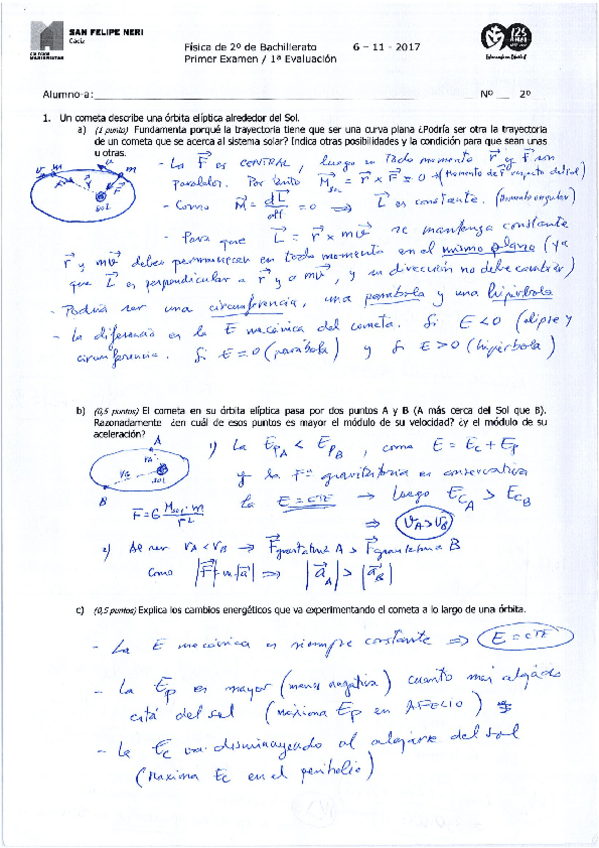 SAN FELIPE NERI
Cádiz
COLEGIO
MARIANISTAS
125
Física de 2º de Bachillerato 6 – 11 - 2017
Primer Examen / 1ª Evaluación
Alumno-a: Nº 2º
1. Un cometa describe una órbita elíptica alrededor del Sol.
a) (1 punto) Fundamenta porqué la trayectoria tiene que ser una curva plana ¿Podría ser otra la trayectoria
de un cometa que se acerca al sistema solar? Indica otras posibilidades y la condición para que sean unas
u otras.
- La F es CENTRAL, luego en todo momento r y F son
paralelos. Por tanto M = r x F = 0 → (Momento de F respecto del sol)
- Como M = dL/dt = 0 ⇒ L es constante. (Momento angular)
- Para que L = r x mv se mantenga constante
r y mv deben permanecer en todo momento en el mismo plano (ya
que L es perpendicular a r y a mv, y su dirección no debe cambiar)
- Podría ser una circunferencia, una parábola y una hipérbola
- La diferencia es la E mecánica del cometa. Si E<0 (elipse y
circunferencia. Si E=0 (parábola) y Si E>0 (hipérbola)
v m
m
F
r
SOL
b) (0,5 puntos) El cometa en su órbita elíptica pasa por dos puntos A y B (A más cerca del Sol que B).
Razonadamente ¿en cuál de esos puntos es mayor el módulo de su velocidad? ¿y el módulo de su
aceleración?
A
rA
rB
SOL
B
F = G Msol · m / r²
1) La EpA < EpB, como E = Ec + Ep
y la Fª gravitatoria es conservativa
la E = CTE → luego EcA > EcB
⇒ vA > vB
2) Al ser rA < rB → Fgravitatoria A > Fgravitatoria B
Como |F| = m|a| ⇒ |aA| > |aB|
c) (0,5 puntos) Explica los cambios energéticos que va experimentando el cometa a lo largo de una órbita.
- La E mecánica es siempre constante ⇒ E = CTE
- La Ep es mayor (menos negativa) cuanto más alejado
está del sol (máxima Ep en AFELIO)
- La Ec va disminuyendo al alejarse del sol
(máxima Ec en el perihelio)